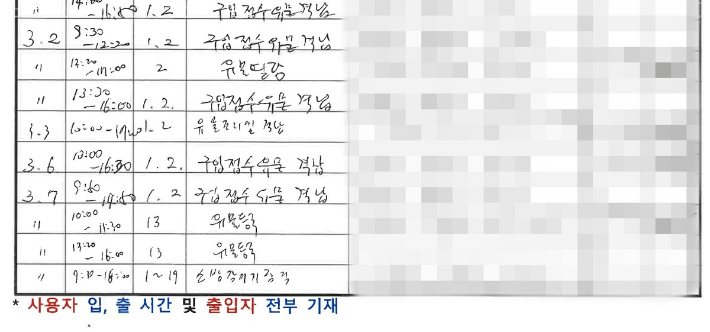 " 14:00 ~16:50 1.2 구입접수유물 격납
3.2 9:30 ~12:20 1.2 구입접수유물 격납
" 13:20 ~17:00 2 유물
" 13:30 ~16:00 1.2. 구입접수유물 격납
3.3 10:00 1-2 유물 격납
3.6 10:00 ~16:30 1.2. 구입접수유물 격납
3.7 9:50 1.2 구입접수유물 격납
" 10:00 ~11:30 13 유물등록
" 13:20 ~16:00 13 유물등록
" 1~19
* 사용자 입, 출 시간 및 출입자 전부 기재